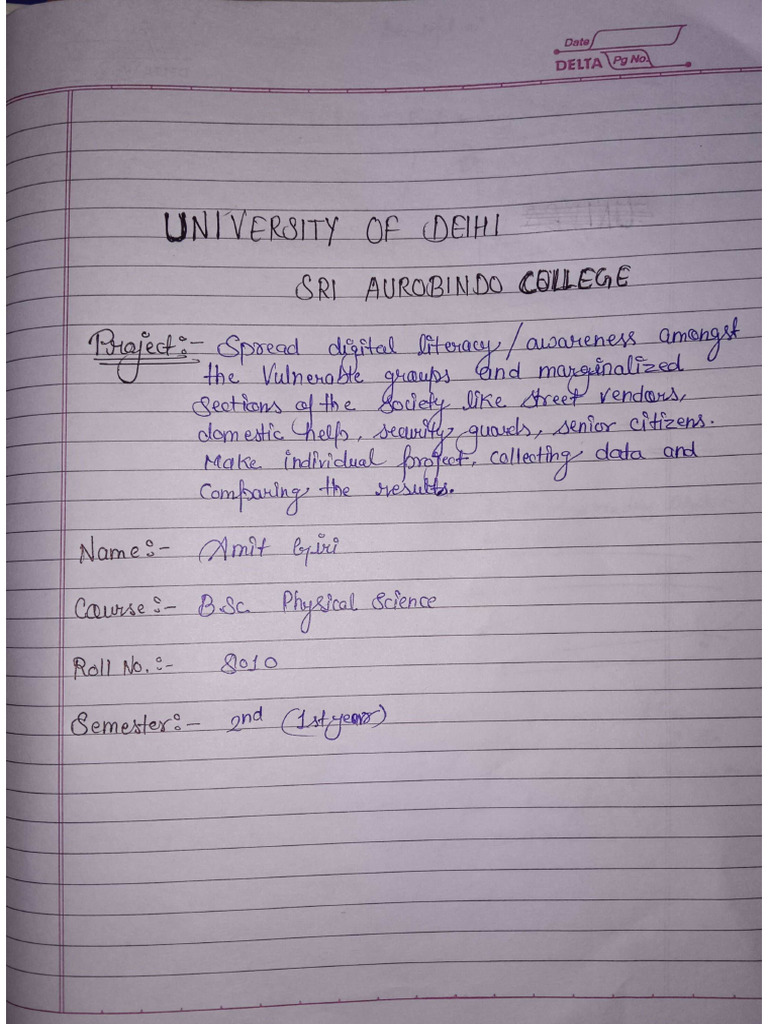 Date
DELTA Pg No.
UNIVERSITY OF DELHI
SRI AUROBINDO COLLEGE
Project:- Spread digital literacy/awareness amongst
the Vulnerable groups and marginalized
Sections of the Society like street vendors,
domestic help, security guards, senior citizens.
Make individual project, collecting data and
Comparing the results.
Name:- Amit Giri
Course:- B.Sc. Physical Science
Roll No.:- 8010
Semester:- 2nd (1st year)